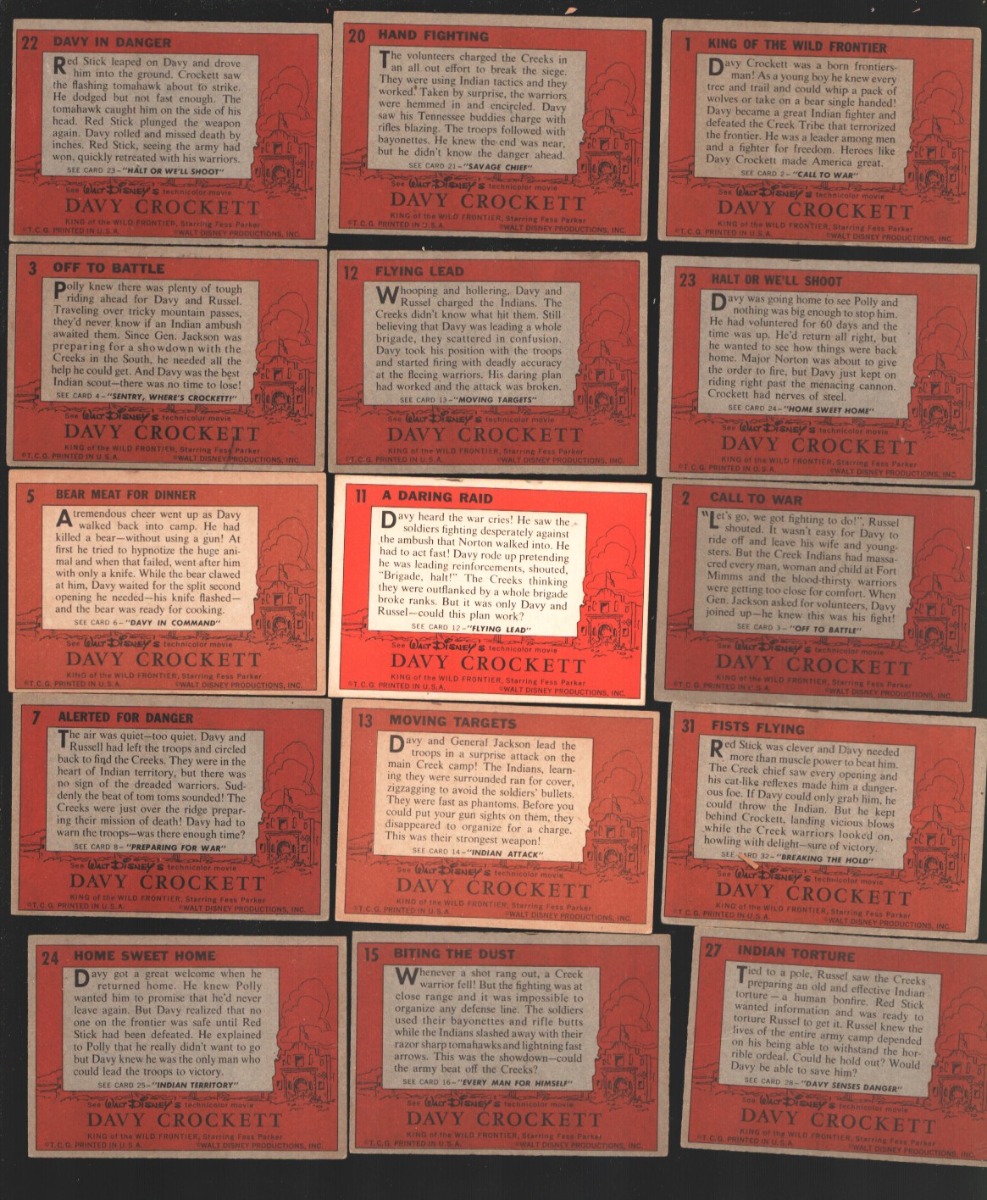 22 DAVY IN DANGER
Red Stick leaped on Davy and drove
him into the ground. Crockett saw
the flashing tomahawk about to strike.
He dodged but not fast enough. The
tomahawk caught him on the side of his
head. Red Stick plunged the weapon
again. Davy rolled and missed death by
inches. Red Stick, seeing the army had
won, quickly retreated with his warriors.
SEE CARD 23-"HALT OR WE'LL SHOOT"
See WALT DISNEY'S technicolor movie
DAVY CROCKETT
KING of the WILD FRONTIER, Starring Fess Parker
©T.C.G. PRINTED IN U.S.A. ©WALT DISNEY PRODUCTIONS, INC.
20 HAND FIGHTING
The volunteers charged the Creeks in
an all out effort to break the siege.
They were using Indian tactics and they
worked. Taken by surprise, the warriors
were hemmed in and encircled. Davy
saw his Tennessee buddies charge with
rifles blazing. The troops followed with
bayonettes. He knew the end was near,
but he didn't know the danger ahead.
SEE CARD 21-"SAVAGE CHIEF"
See WALT DISNEY'S technicolor movie
DAVY CROCKETT
KING of the WILD FRONTIER, Starring Fess Parker
©T.C.G. PRINTED IN U.S.A. ©WALT DISNEY PRODUCTIONS, INC.
1 KING OF THE WILD FRONTIER
Davy Crockett was a born frontiers-
man! As a young boy he knew every
tree and trail and could whip a pack of
wolves or take on a bear single handed!
Davy became a great Indian fighter and
defeated the Creek Tribe that terrorized
the frontier. He was a leader among men
and a fighter for freedom. Heroes like
Davy Crockett made America great.
SEE CARD 2-"CALL TO WAR"
See WALT DISNEY'S technicolor movie
DAVY CROCKETT
KING of the WILD FRONTIER, Starring Fess Parker
©T.C.G. PRINTED IN U.S.A. ©WALT DISNEY PRODUCTIONS, INC.
3 OFF TO BATTLE
Polly knew there was plenty of tough
riding ahead for Davy and Russel.
Traveling over tricky mountain passes,
they'd never know if an Indian ambush
awaited them. Since Gen. Jackson was
preparing for a showdown with the
Creeks in the South, he needed all the
help he could get. And Davy was the best
Indian scout—there was no time to lose!
SEE CARD 4-"SENTRY, WHERE'S CROCKETT!"
See WALT DISNEY'S technicolor movie
DAVY CROCKETT
KING of the WILD FRONTIER, Starring Fess Parker
©T.C.G. PRINTED IN U.S.A. ©WALT DISNEY PRODUCTIONS, INC.
12 FLYING LEAD
Whooping and hollering, Davy and
Russel charged the Indians. The
Creeks didn't know what hit them. Still
believing that Davy was leading a whole
brigade, they scattered in confusion.
Davy took his position with the troops
and started firing with deadly accuracy
at the fleeing warriors. His daring plan
had worked and the attack was broken.
SEE CARD 13-"MOVING TARGETS"
See WALT DISNEY'S technicolor movie
DAVY CROCKETT
KING of the WILD FRONTIER, Starring Fess Parker
©T.C.G. PRINTED IN U.S.A. ©WALT DISNEY PRODUCTIONS, INC.
23 HALT OR WE'LL SHOOT
Davy was going home to see Polly and
nothing was big enough to stop him.
He had voluntered for 60 days and the
time was up. He'd return all right, but
he wanted to see how things were back
home. Major Norton was about to give
the order to fire, but Davy just kept on
riding right past the menacing cannon.
Crockett had nerves of steel.
SEE CARD 24-"HOME SWEET HOME"
See WALT DISNEY'S technicolor movie
DAVY CROCKETT
KING of the WILD FRONTIER, Starring Fess Parker
©T.C.G. PRINTED IN U.S.A. ©WALT DISNEY PRODUCTIONS, INC.
5 BEAR MEAT FOR DINNER
A tremendous cheer went up as Davy
walked back into camp. He had
killed a bear—without using a gun! At
first he tried to hypnotize the huge ani-
mal and when that failed, went after him
with only a knife. While the bear clawed
at him, Davy waited for the split second
opening he needed—his knife flashed—
and the bear was ready for cooking.
SEE CARD 6-"DAVY IN COMMAND"
See WALT DISNEY'S technicolor movie
DAVY CROCKETT
KING of the WILD FRONTIER, Starring Fess Parker
©T.C.G. PRINTED IN U.S.A. ©WALT DISNEY PRODUCTIONS, INC.
11 A DARING RAID
Davy heard the war cries! He saw the
soldiers fighting desperately against
the ambush that Norton walked into. He
had to act fast! Davy rode up pretending
he was leading reinforcements, shouted,
"Brigade, halt!" The Creeks thinking
they were outflanked by a whole brigade
broke ranks. But it was only Davy and
Russel—could this plan work?
SEE CARD 12-"FLYING LEAD"
See WALT DISNEY'S technicolor movie
DAVY CROCKETT
KING of the WILD FRONTIER, Starring Fess Parker
©T.C.G. PRINTED IN U.S.A. ©WALT DISNEY PRODUCTIONS, INC.
2 CALL TO WAR
"Let's go, we got fighting to do!", Russel
shouted. It wasn't easy for Davy to
ride off and leave his wife and young-
sters. But the Creek Indians had massa-
cred every man, woman and child at Fort
Mimms and the blood-thirsty warriors
were getting too close for comfort. When
Gen. Jackson asked for volunteers, Davy
joined up—he knew this was his fight!
SEE CARD 3-"OFF TO BATTLE"
See WALT DISNEY'S technicolor movie
DAVY CROCKETT
KING of the WILD FRONTIER, Starring Fess Parker
©T.C.G. PRINTED IN U.S.A. ©WALT DISNEY PRODUCTIONS, INC.
7 ALERTED FOR DANGER
The air was quiet—too quiet. Davy and
Russell had left the troops and circled
back to find the Creeks. They were in the
heart of Indian territory, but there was
no sign of the dreaded warriors. Sud-
denly the beat of tom toms sounded! The
Creeks were just over the ridge prepar-
ing their mission of death! Davy had to
warn the troops—was there enough time?
SEE CARD 8-"PREPARING FOR WAR"
See WALT DISNEY'S technicolor movie
DAVY CROCKETT
KING of the WILD FRONTIER, Starring Fess Parker
©T.C.G. PRINTED IN U.S.A. ©WALT DISNEY PRODUCTIONS, INC.
13 MOVING TARGETS
Davy and General Jackson lead the
troops in a surprise attack on the
main Creek camp! The Indians, learn-
ing they were surrounded ran for cover,
zigzagging to avoid the soldiers' bullets.
They were fast as phantoms. Before you
could put your gun sights on them, they
disappeared to organize for a charge.
This was their strongest weapon!
SEE CARD 14-"INDIAN ATTACK"
See WALT DISNEY'S technicolor movie
DAVY CROCKETT
KING of the WILD FRONTIER, Starring Fess Parker
©T.C.G. PRINTED IN U.S.A. ©WALT DISNEY PRODUCTIONS, INC.
31 FISTS FLYING
Red Stick was clever and Davy needed
more than muscle power to beat him.
The Creek chief saw every opening and
his cat-like reflexes made him a danger-
ous foe. If Davy could only grab him, he
could throw the Indian. But he kept
behind Crockett, landing vicious blows
while the Creek warriors looked on,
howling with delight—sure of victory.
SEE CARD 32-"BREAKING THE HOLD"
See WALT DISNEY'S technicolor movie
DAVY CROCKETT
KING of the WILD FRONTIER, Starring Fess Parker
©T.C.G. PRINTED IN U.S.A. ©WALT DISNEY PRODUCTIONS, INC.
24 HOME SWEET HOME
Davy got a great welcome when he
returned home. He knew Polly
wanted him to promise that he'd never
leave again. But Davy realized that no
one on the frontier was safe until Red
Stick had been defeated. He explained
to Polly that he really didn't want to go
but Davy knew he was the only man who
could lead the troops to victory.
SEE CARD 25-"INDIAN TERRITORY"
See WALT DISNEY'S technicolor movie
DAVY CROCKETT
KING of the WILD FRONTIER, Starring Fess Parker
©T.C.G. PRINTED IN U.S.A. ©WALT DISNEY PRODUCTIONS, INC.
15 BITING THE DUST
Whenever a shot rang out, a Creek
warrior fell! But the fighting was at
close range and it was impossible to
organize any defense line. The soldiers
used their bayonettes and rifle butts
while the Indians slashed away with their
razor sharp tomahawks and lightning fast
arrows. This was the showdown—could
the army beat off the Creeks?
SEE CARD 16-"EVERY MAN FOR HIMSELF"
See WALT DISNEY'S technicolor movie
DAVY CROCKETT
KING of the WILD FRONTIER, Starring Fess Parker
©T.C.G. PRINTED IN U.S.A. ©WALT DISNEY PRODUCTIONS, INC.
27 INDIAN TORTURE
Tied to a pole, Russel saw the Creeks
preparing an old and effective Indian
torture — a human bonfire. Red Stick
wanted information and was ready to
torture Russel to get it. Russel knew the
lives of the entire army camp depended
on his being able to withstand the hor-
rible ordeal. Could he hold out? Would
Davy be able to save him?
SEE CARD 28-"DAVY SENSES DANGER"
See WALT DISNEY'S technicolor movie
DAVY CROCKETT
KING of the WILD FRONTIER, Starring Fess Parker
©T.C.G. PRINTED IN U.S.A. ©WALT DISNEY PRODUCTIONS, INC.